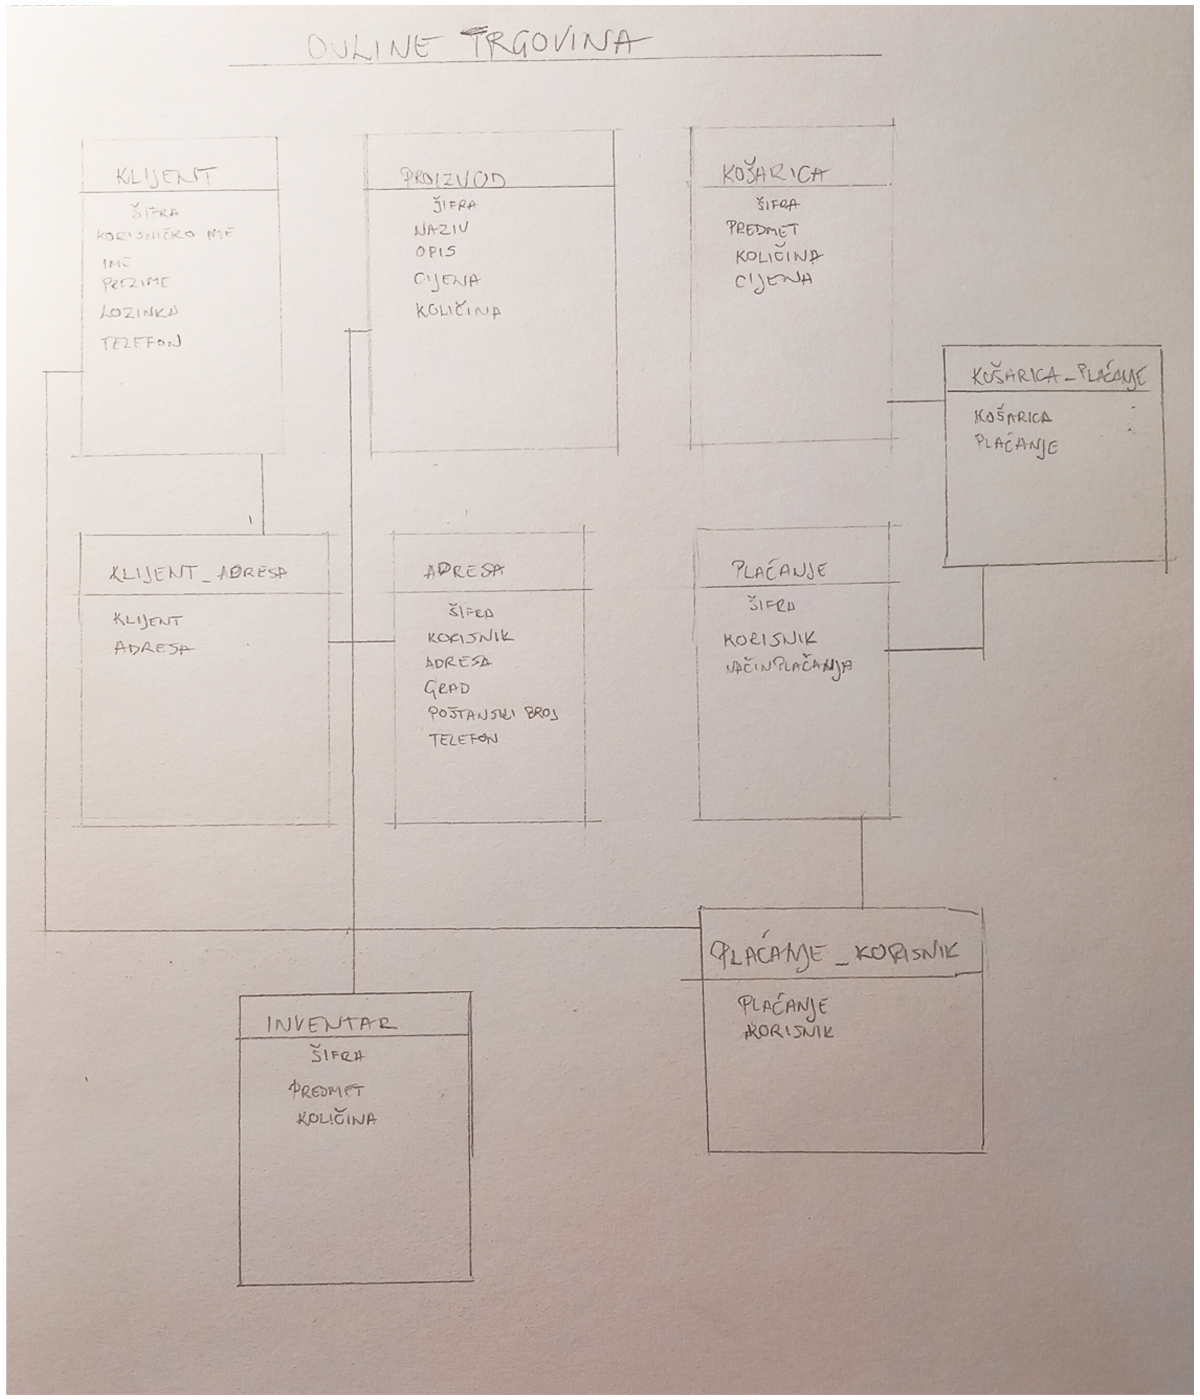 ONLINE TRGOVINA
KLIJENT
ŠIFRA
KORISNIČKO IME
IME
PREZIME
LOZINKA
TELEFON
PROIZVOD
ŠIFRA
NAZIV
OPIS
CIJENA
KOLIČINA
KOŠARICA
ŠIFRA
PREDMET
KOLIČINA
CIJENA
KOŠARICA_PLAĆANJE
KOŠARICA
PLAĆANJE
KLIJENT_ADRESA
KLIJENT
ADRESA
ADRESA
ŠIFRA
KORISNIK
ADRESA
GRAD
POŠTANSKI BROJ
TELEFON
PLAĆANJE
ŠIFRA
KORISNIK
NAČINPLAČANJA
PLAĆANJE_KORISNIK
PLAĆANJE
KORISNIK
INVENTAR
ŠIFRA
PREDMET
KOLIČINA